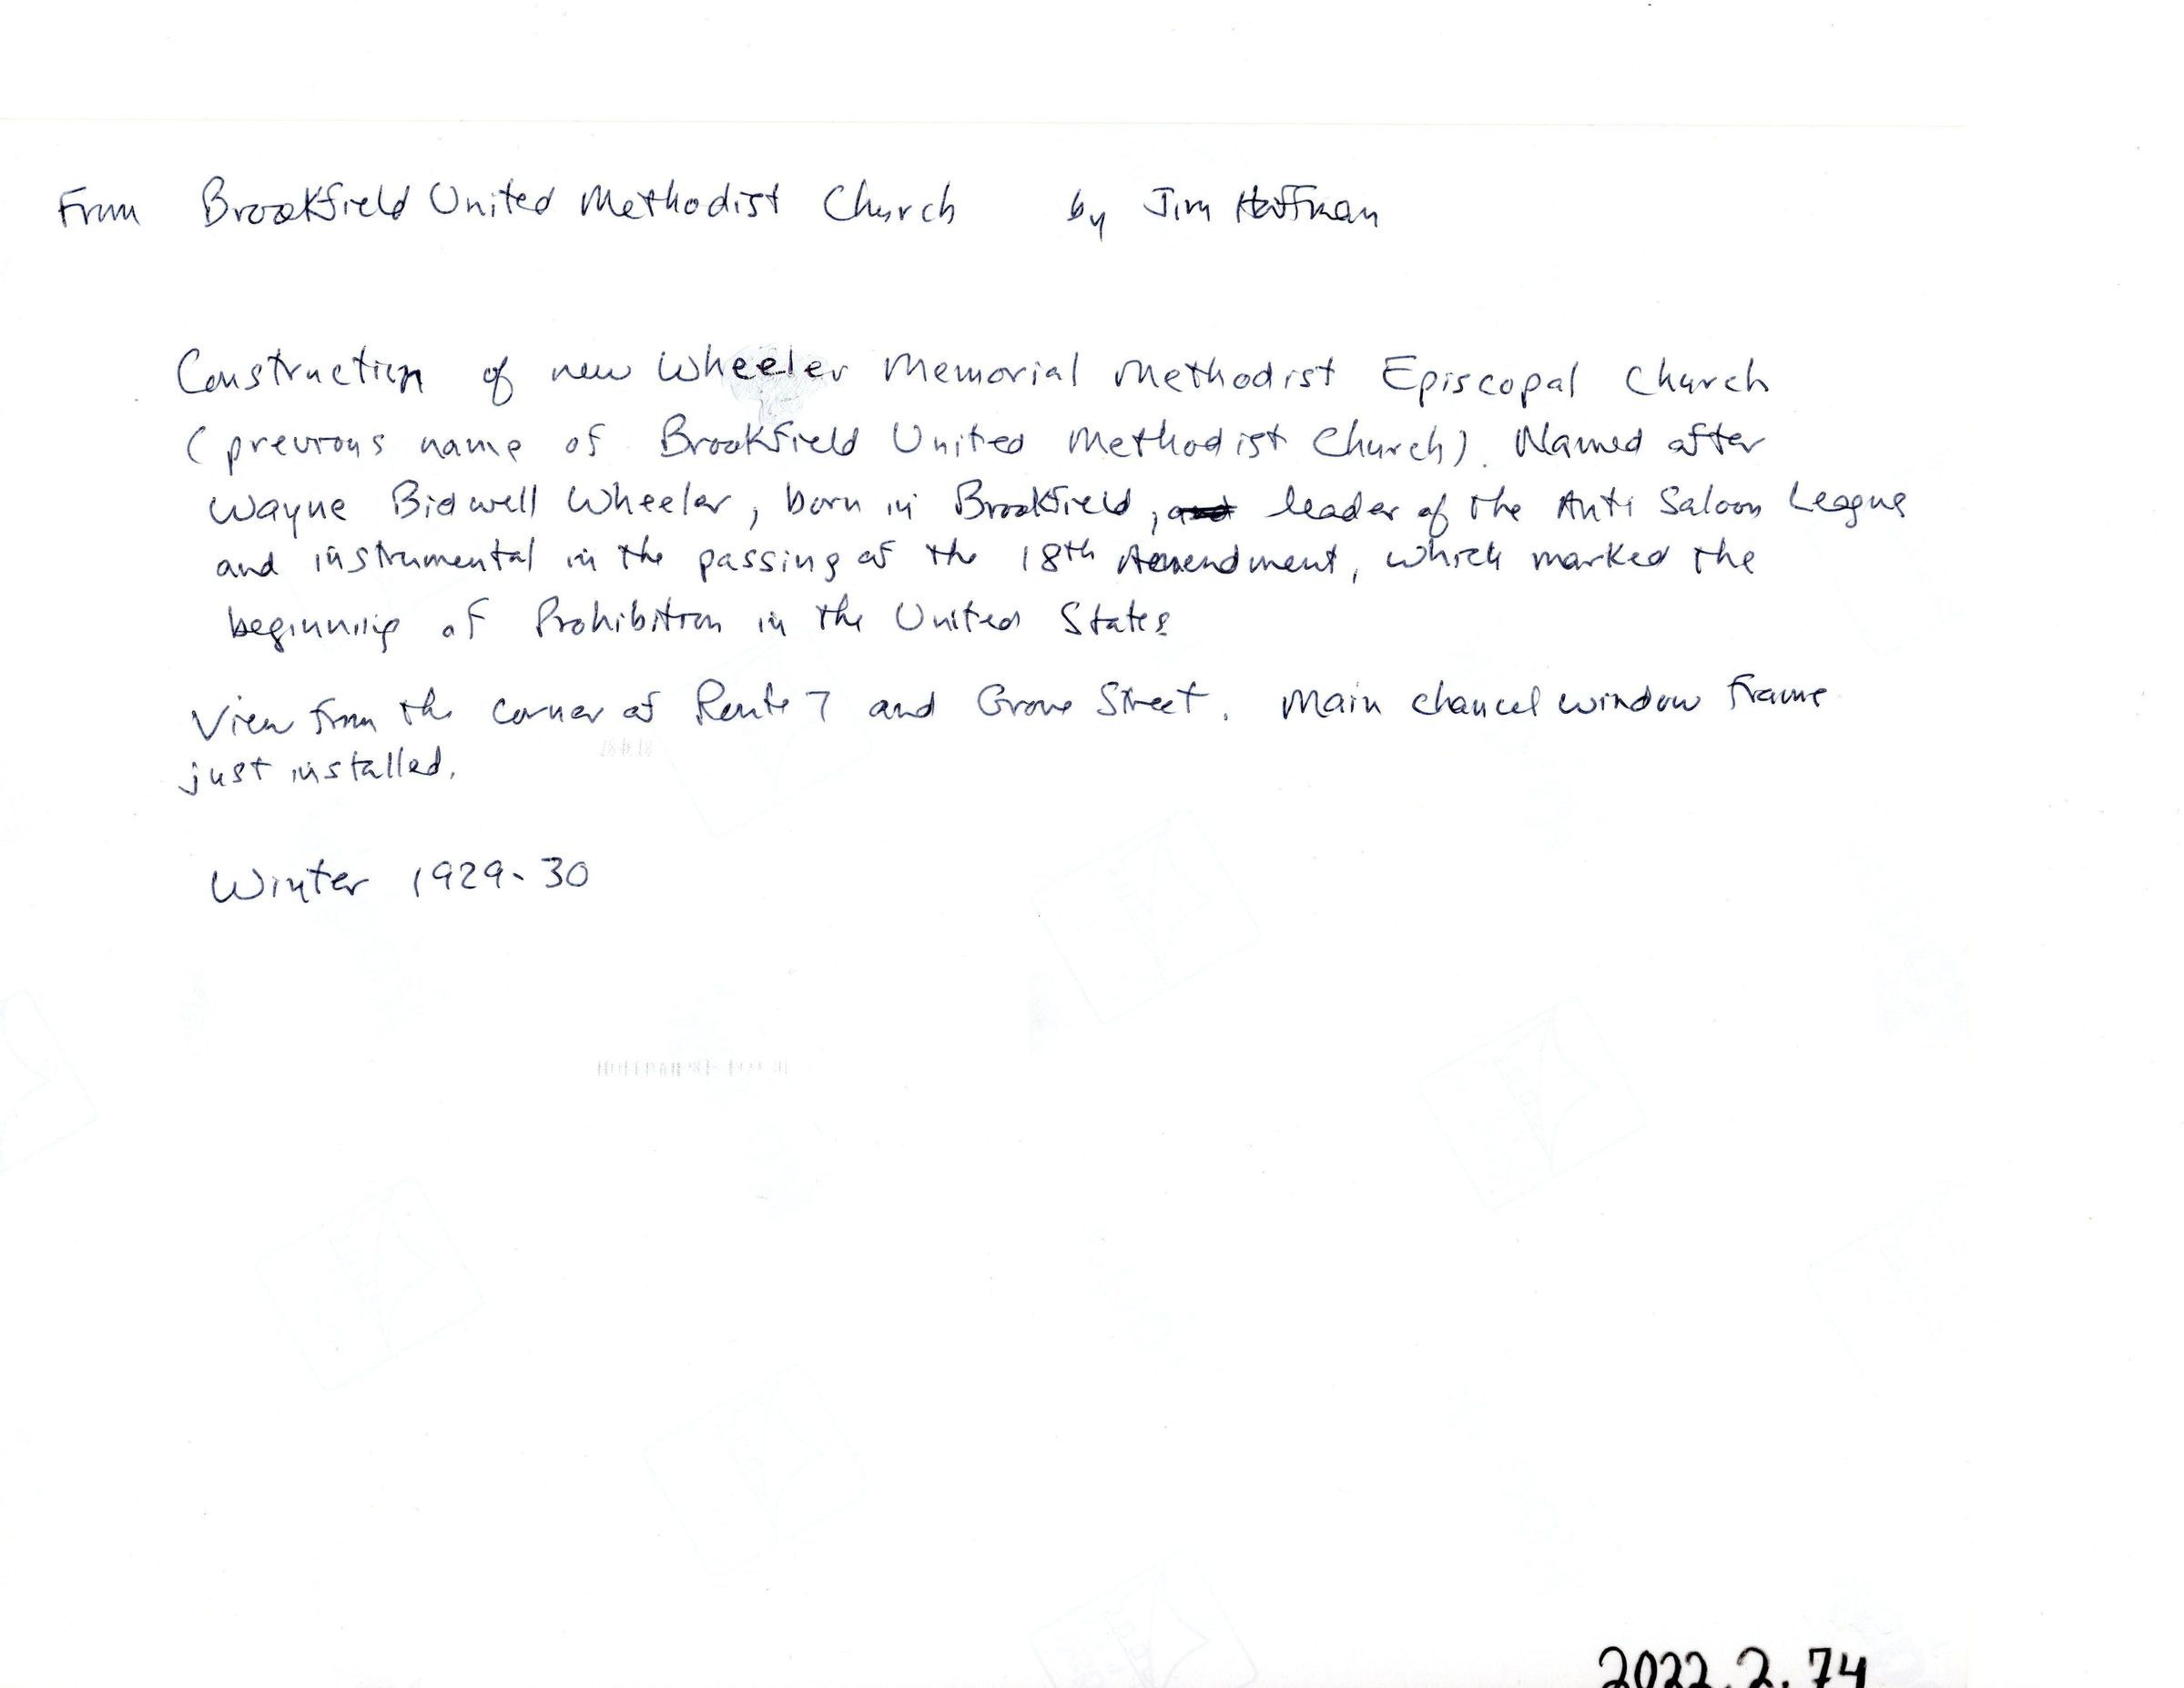 From Brookfield United Methodist Church by Jim Hoffman
Construction of new Wheeler Memorial Methodist Episcopal Church
(previous name of Brookfield United Methodist Church). Named after
Wayne Bidwell Wheeler, born in Brookfield, and leader of the Anti Saloon League
and instrumental in the passing of the 18th Amendment, which marked the
beginning of Prohibition in the United States
View from the corner of Route 7 and Grove Street. Main chancel window frame
just installed.
Winter 1929-30
2022.2.74